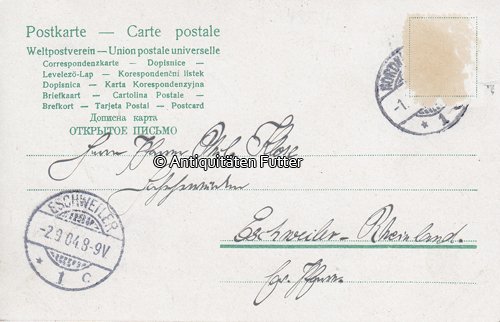 Postkarte — Carte postale
Weltpostverein — Union postale universelle
Correspondenzkarte — Dopisnice —
Levelező-Lap — Korespondenční lístek
Dopisnica — Karta Korespondenzyjna
Briefkaart — Cartolina Postale —
Brefkort — Tarjeta Postal — Postcard
Дописна карта
ОТКРЫТОЕ ПИСЬМО
-1.
* 1
Herrn
© Antiquitäten Futter
Eschweiler-Rheinland.
ESCHWEILER
-2.9.04.8-9V.
* 1 c